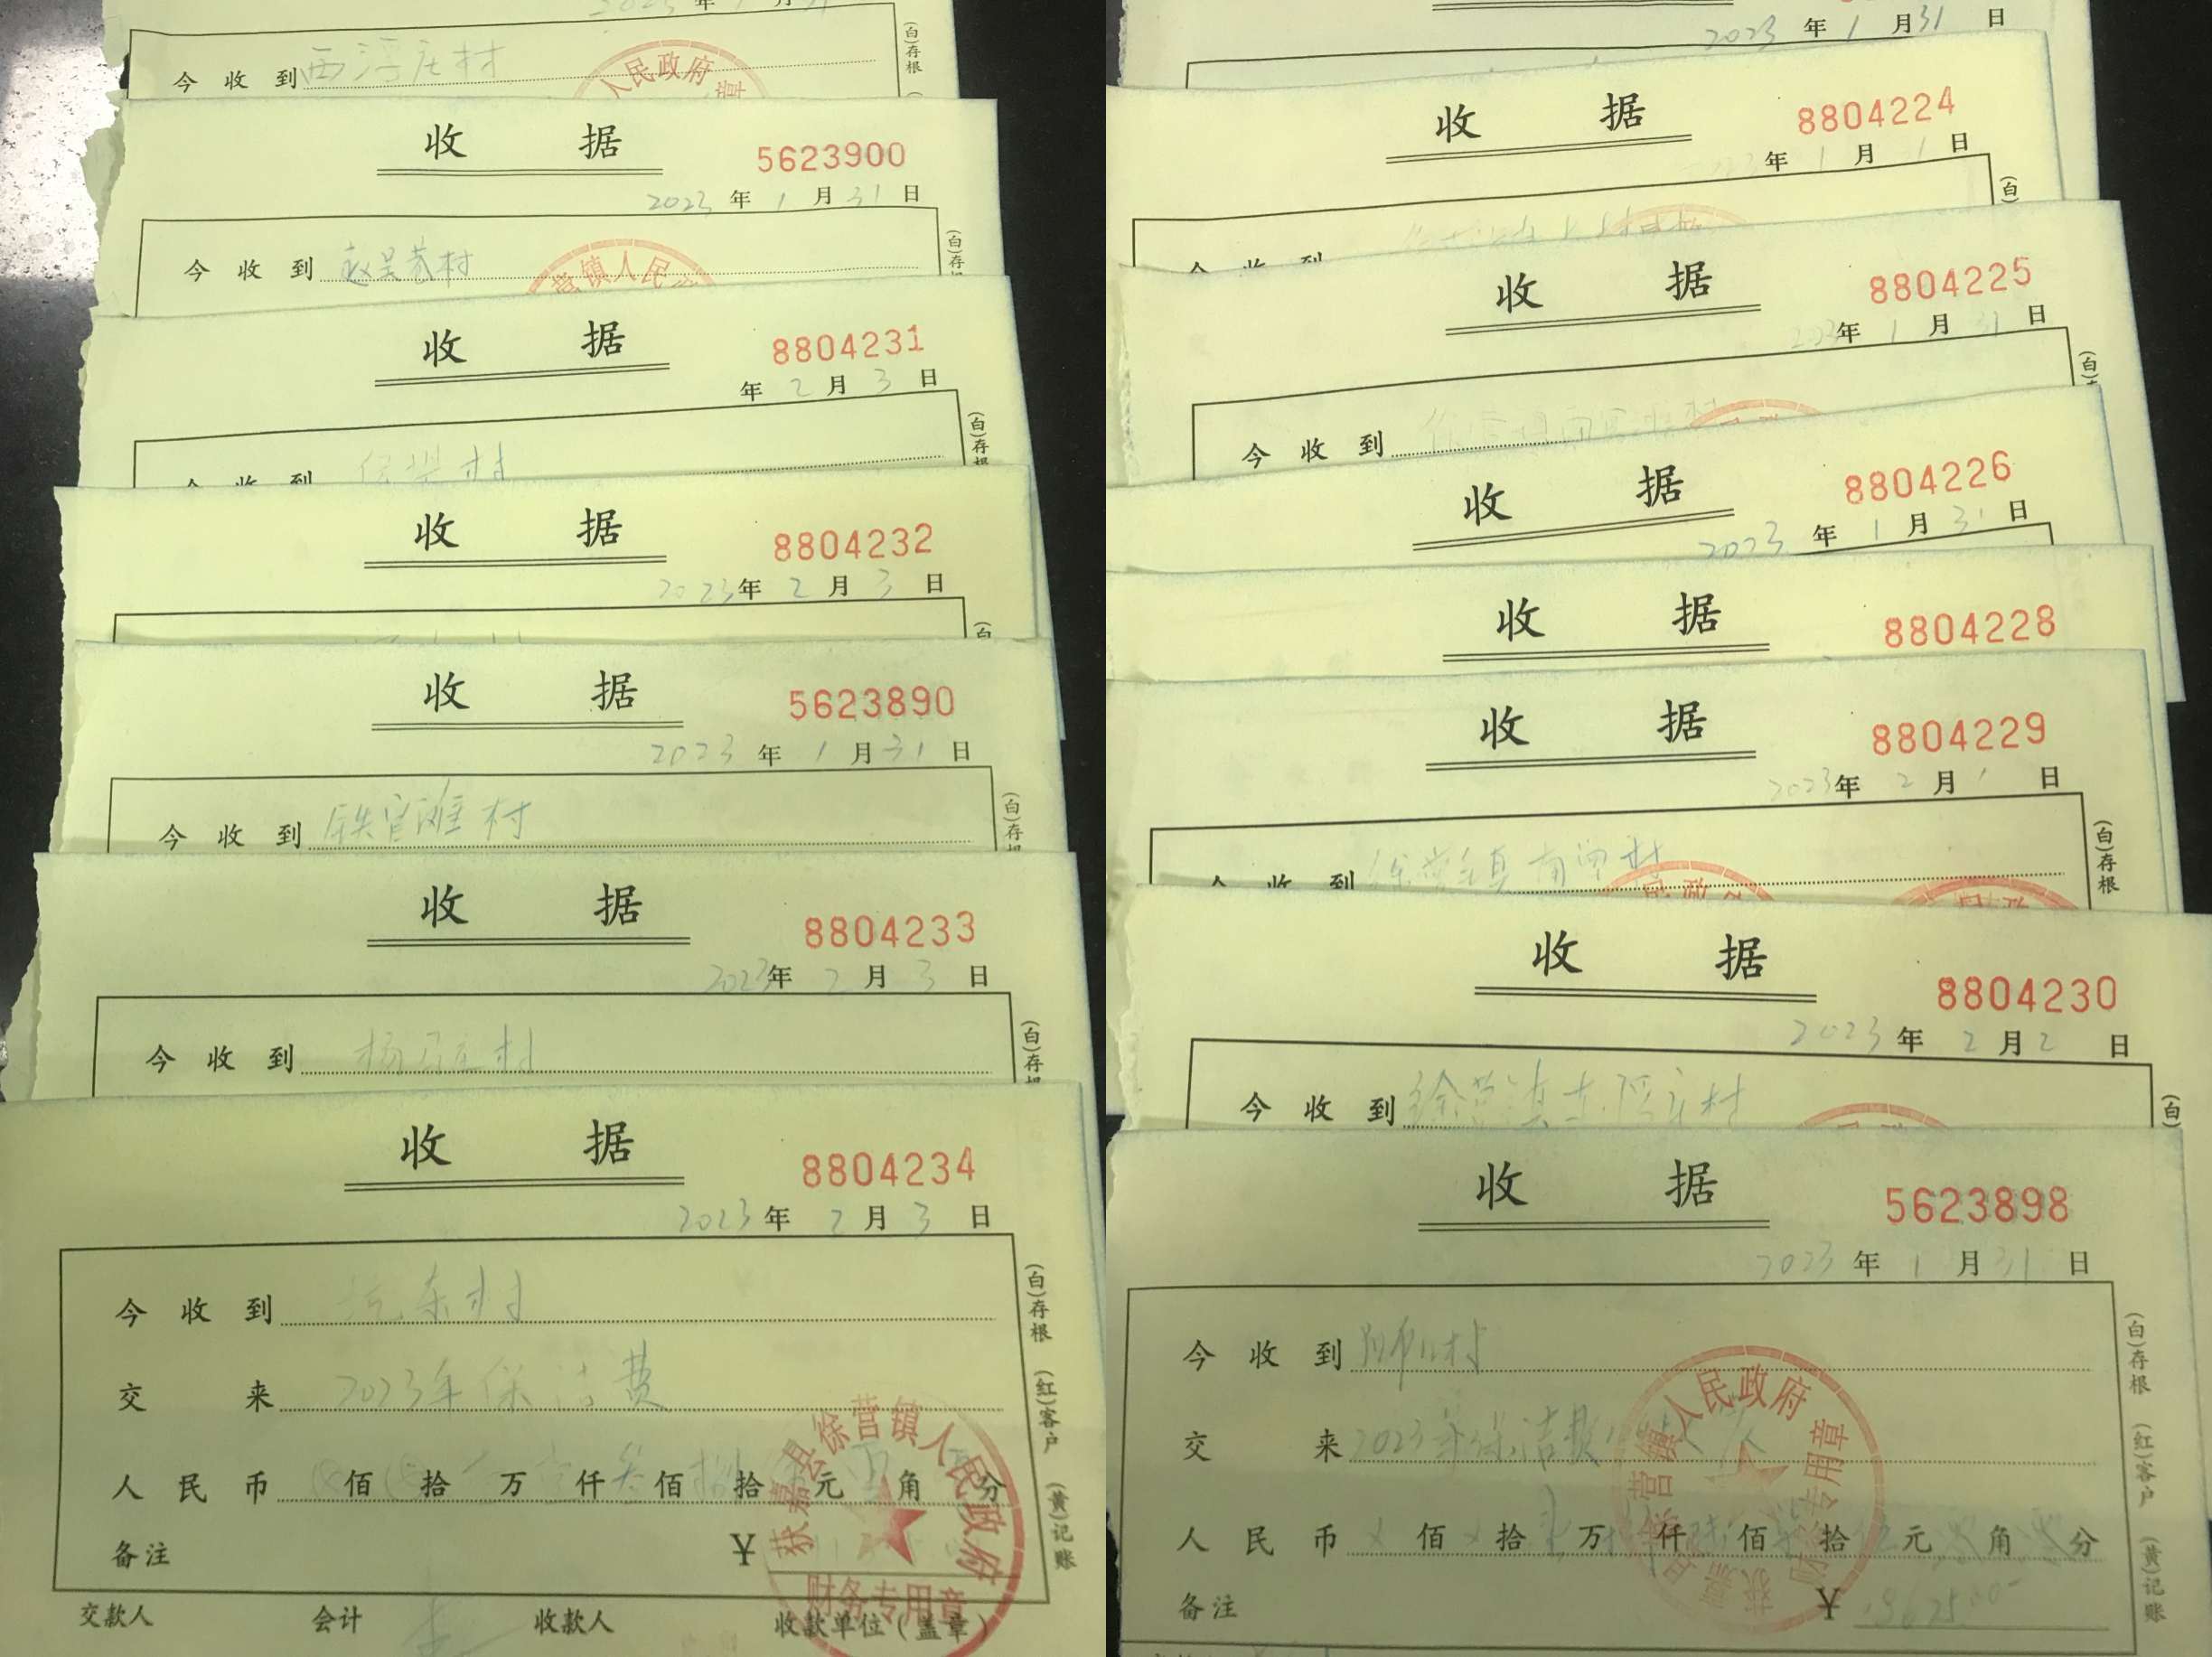 2023年1月31
今收到西浮庄村
(白)存根
人民政府
章
收据
5623900
2023年1月31日
今收到赵吴巷村
(白)存根
营镇人民
收据
8804231
年2月3日
今收到
村
(白)存根
收据
8804232
2023年2月3日
(白
收据
5623890
2023年1月31日
今收到铁官滩村
(白)存根
收据
8804233
2023年2月3日
今收到杨 庄村
(白)存根
收据
8804234
2023年2月3日
今收到 东村
交来2023年保洁费
人民币 佰 拾 万 仟叁佰 拾 元 角 分
备注 ¥
交款人 会计 收款人 收款单位(盖章)
(白)存根 (红)客户 (黄)记账
获嘉县徐营镇人民政府
财务专用章
2023年1月31日
收据
8804224
年1月 日
今收到
(白
收据
8804225
2023年1月31日
今收到徐营镇 村
(白)
收据
8804226
2023年1月31日
收据
8804228
收据
8804229
2023年2月1日
今收到徐营镇 村
(白)存根
收据
8804230
2023年2月2日
今收到徐营镇东浮庄村
(白)
收据
5623898
2023年1月31日
今收到 村
交来2023年保洁费
人民币 佰 拾 万 仟 佰 拾 元 角 分
备注 ¥
(白)存根 (红)客户 (黄)记账
获嘉县徐营镇人民政府
财务专用章